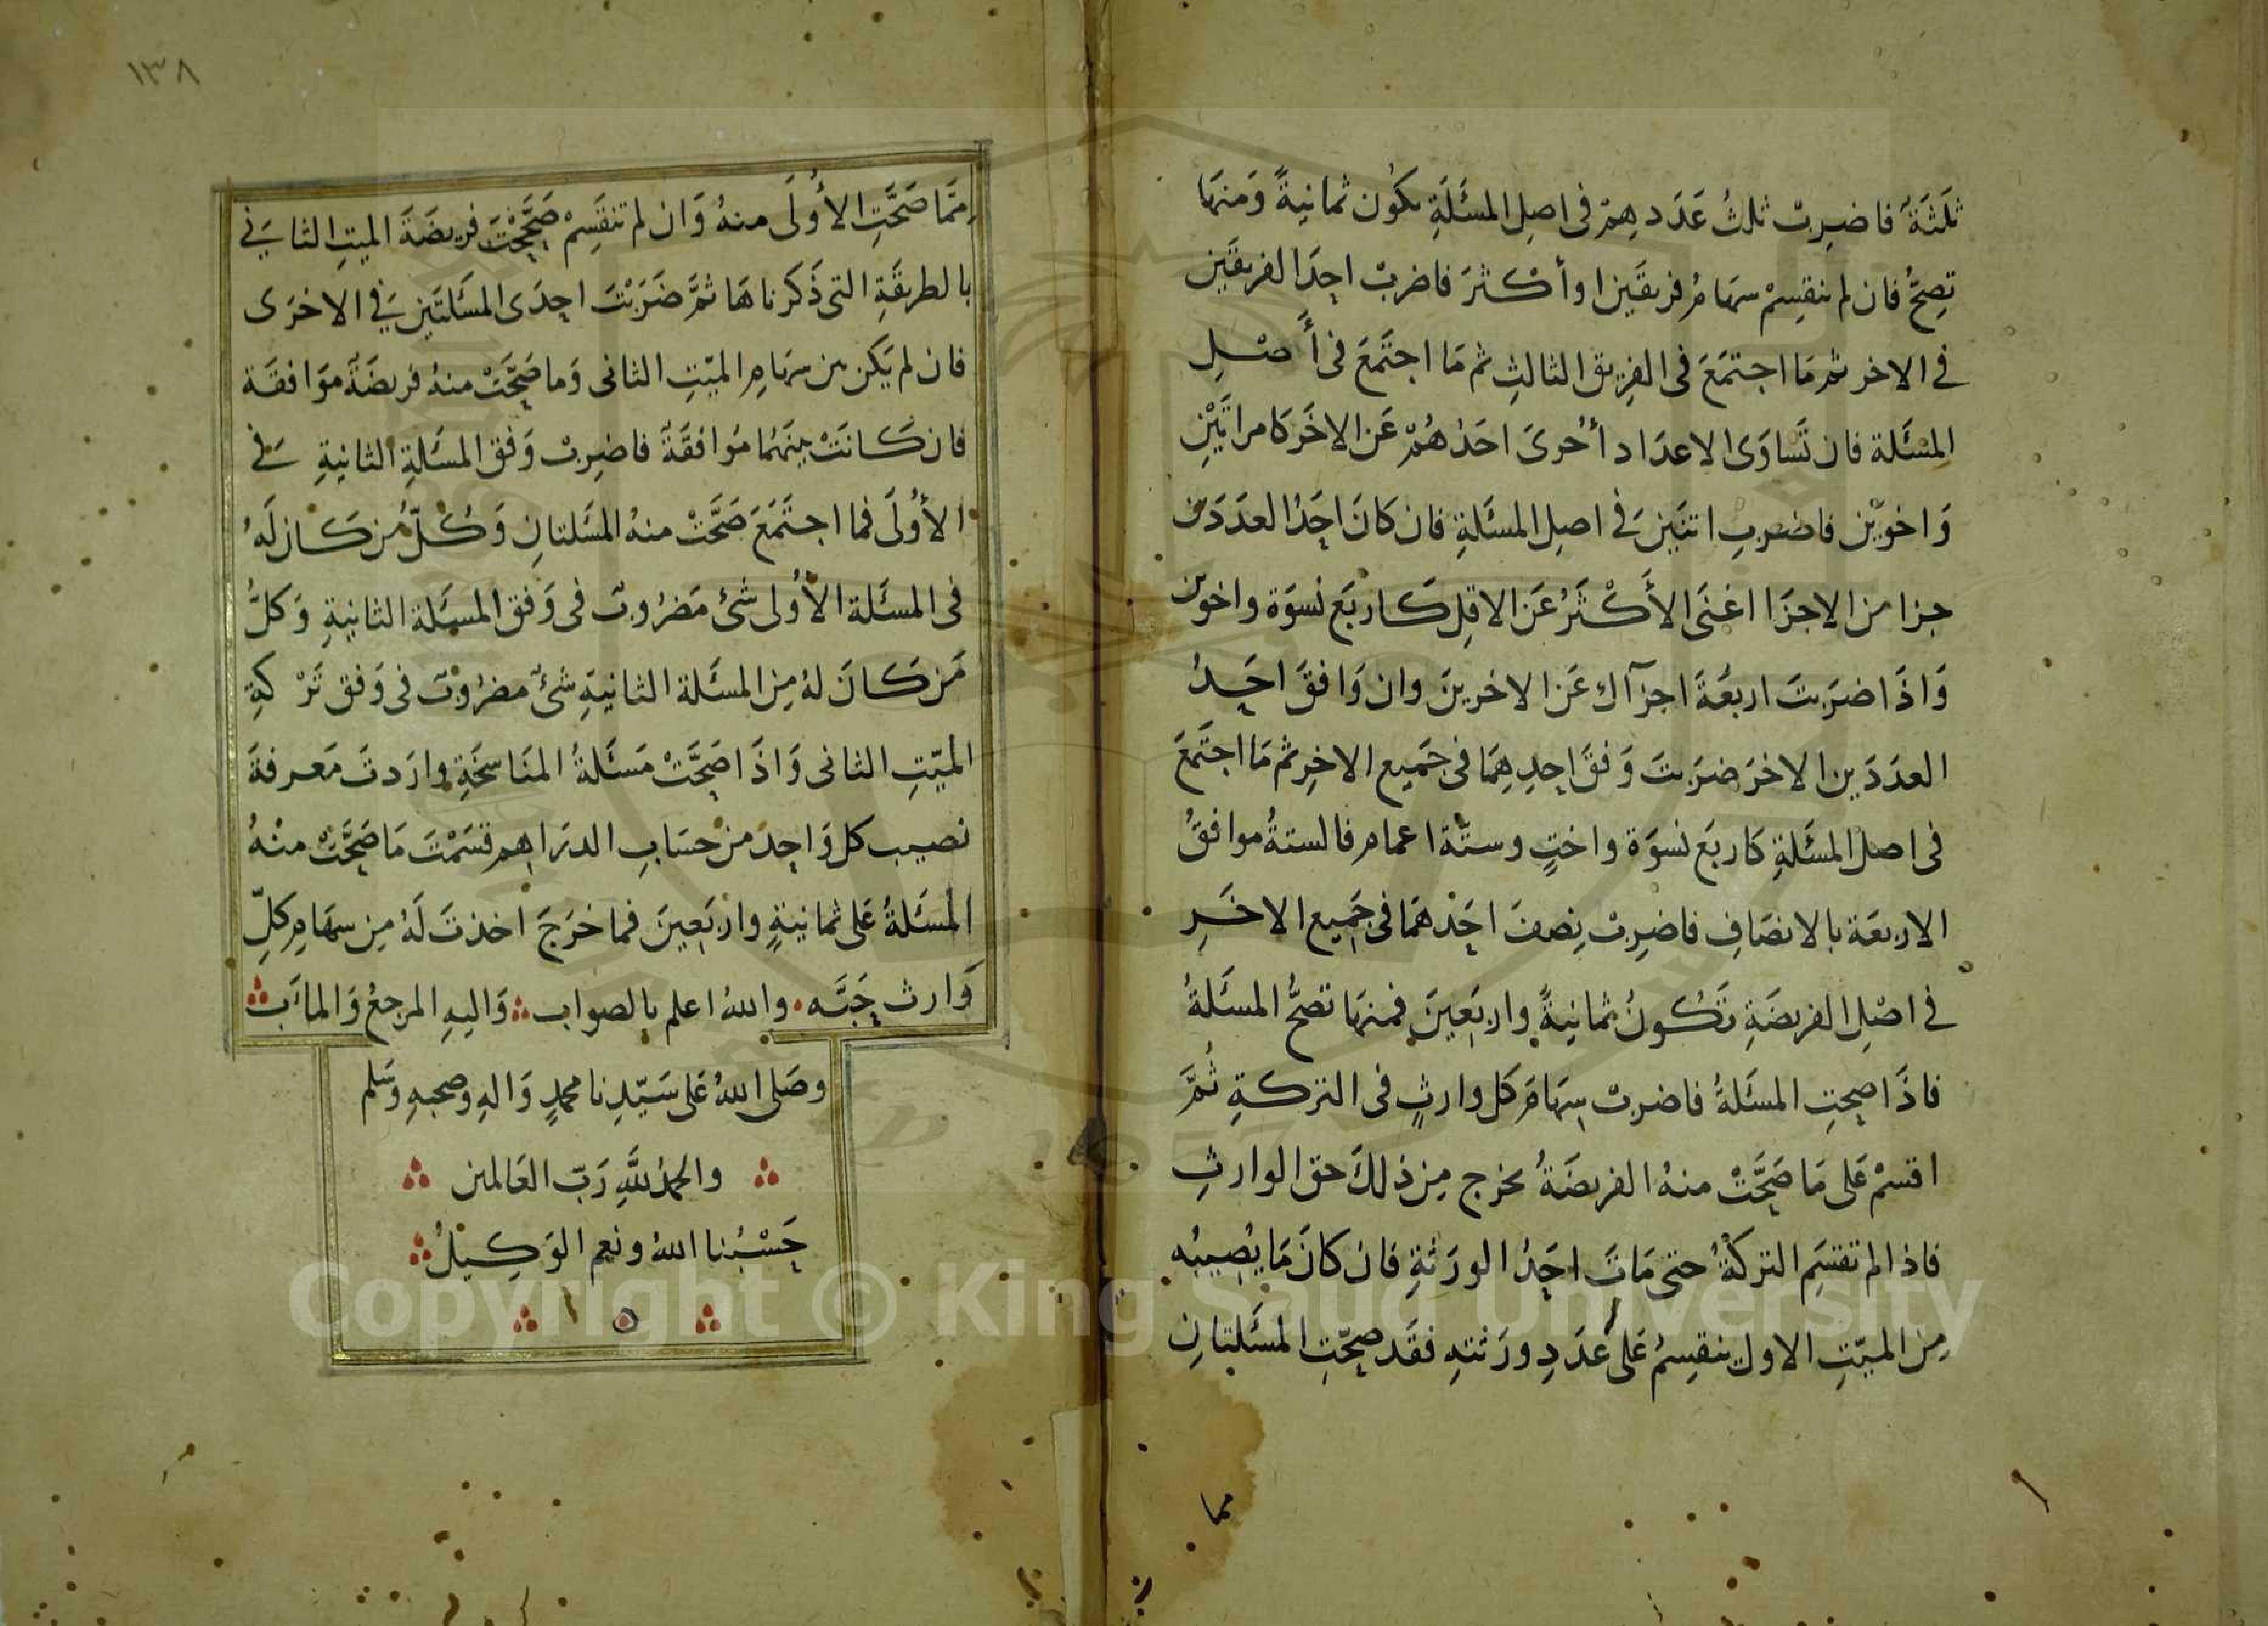 ثلَثَةٌ فاضرِبْ ثلثُ عَدَدِهِمْ فى اصلِ المسئَلَةِ يكوُن ثمانيةً وَمنهَا
تصِحُّ فان لم ينقسِمْ سهَامُ فريقَين اوأكْثرَ فاضربْ احِدَا لفريقَين
فِى الاخر ثم مَا اجتمَعَ فى الفرِيق الثالثِ ثم مَا اجتَمَعَ فى أَصْلِ
المسْئَلة فان تَساوَى الاعدَاد أحُوىَ احَدُهُمْ عَن الاخَر كَامراتَيْنِ
وَاخويْن فاضربِ اثنَين فى اصلِ المسئَلةِ فان كَانَ احَدُ العدَدَين
جزا من الاجزَا اغنَى الأَكْثَرُ عَن الاقِل كَاربَع نُسوَة واخوين
وَاذَا ضرَبتَ اربعَةً اجزآك عَن الاخرينَ وان وَافقَ احَدُ
العدَدَين الاخرَ ضرَبتَ وَفقَ احِدِهِمَا فى جَميع الاخِر ثم مَا اجتَمَعَ
فى اصل المسئَلةِ كَاربَع نسوَة واختٍ وستّة اعمام فالستةُ موافقُ
الاربعَة بالانصَافِ فاضرِبْ نِصفَ احَدهمَا فى جَمِيع الاخَرِ
فى اصْلِ الفريضَةِ تَكُونُ ثمانيةً واربَعِينَ فمنهَا تصحُّ المسئَلةُ
فاذَا صحتِ المسئَلةُ فاضربْ سِهَامَ كَل وارثٍ فى التركةِ ثُمَّ
اقسمْ عَلى مَا صَحَّتْ منهُ الفريضَةُ يخرج مِن ذلكَ حق الوارثِ
فاذا لم تقسَمِ التركةُ حتى مَاتَ احَدُ الورَثةِ فان كانَ مَا يُصِيبُه
مِن الميّتِ الاول ينقسِمُ عَلى عَدَدِ ورَثتهِ فقَد صحّتِ المسئَلتانِ
مما
١٣٨
مِمَّا صَحَّتِ الأُولَى منهُ وَان لم تنقَسِمْ صَحَّحْتَ فريضَةَ الميتِ الثانى
بالطريقَةِ التى ذَكَرناهَا ثمَّ ضَرَبْتَ احِدَى المسَلتَين فِى الاخرَى
فان لم يَكن بين سهَامِ الميّتِ الثانى وَما صَحَّتْ منهُ فريضَةٌ مَوَافقَة
فان كَانَتْ بينَهُما مُوَافقَةٌ فاضرِبْ وَفق المسَلةِ الثانيةِ فى
الأوُلَى فما اجتَمَعَ صَحَّتْ منهُ المسَلتانِ وَكُلّ مَن كَان لَهُ
فى المسئَلة الأوُلى شئ مَضرُوبٌ فى وَفق المسئَلة الثانيةِ وَكلُّ
مَن كَانَ لهُ مِن المسئَلة الثانيةِ شئٌ مضرُوبٌ فى وَفق تَرْكةِ
الميّتِ الثانى وَاذَا صَحَّتْ مَسئَلةُ المنَاسخَةِ وارَدتَ مَعرفةَ
نصيب كل وَاحِدَ من حسَابِ الدرَاهم قسَمْتَ مَا صَحَّتْ منْهُ
المسَئَلةُ عَلى ثمانيةٍ واربَعِينَ فما خرَجَ اخذتَ لَهُ مِن سهَامِ كلِّ
وَارث حَبَّه واللهُ اعلم بالصواب وَاليهِ المرجعُ وَالمآبُ
وصَلى اللهُ عَلى سَيّدِنا محمدٍ وَالهِ وصحبهِ وَسَلم
والحمدُ للهِ رَبّ العَالمين
حَسْبُنا اللهُ ونعم الوَكِيلُ
Copyright © King Saud University